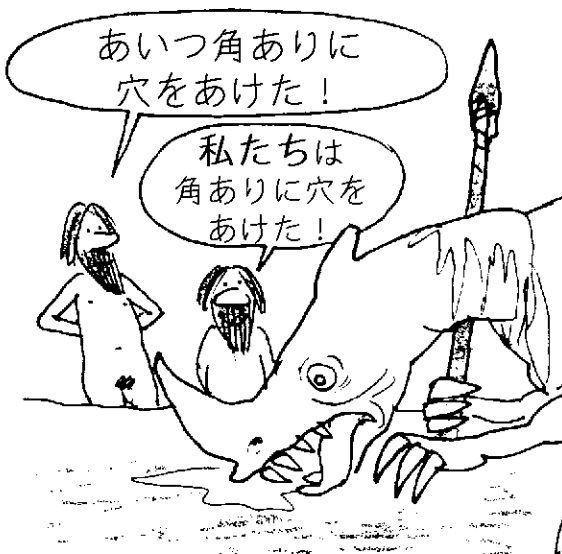 あいつ角ありに
穴をあけた！
私たちは
角ありに穴を
あけた！